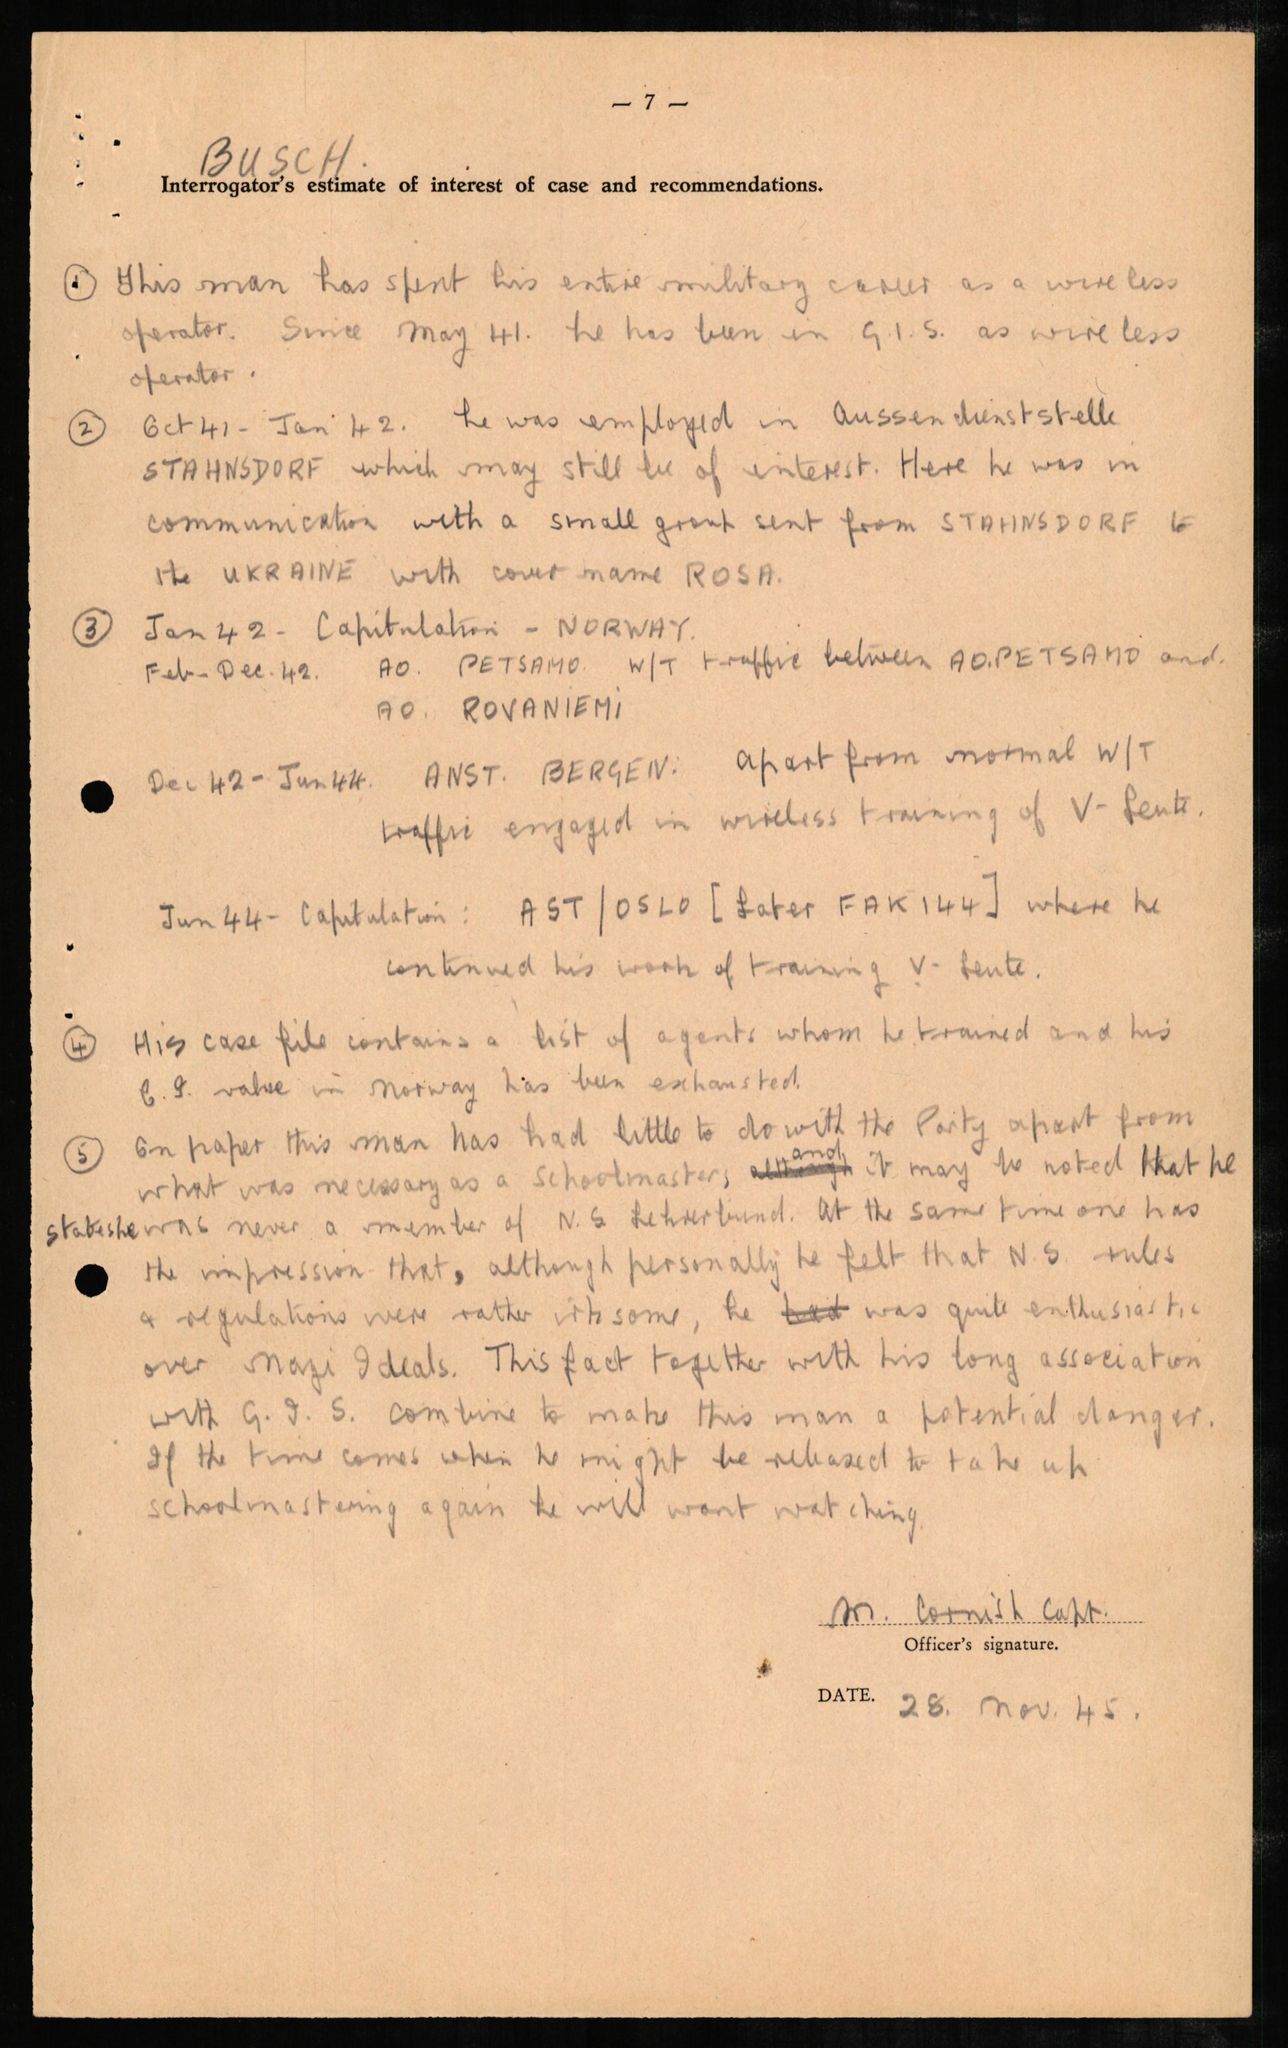 — 7 —
BUSCH.
Interrogator's estimate of interest of case and recommendations.
① This man has spent his entire military career as a wireless
operator. Since May 41. he has been in G.I.S. as wireless
operator.
② Oct 41 - Jan 42. he was employed in Aussendienststelle
STAHNSDORF which may still be of interest. Here he was in
communication with a small group sent from STAHNSDORF to
the UKRAINE with cover name ROSA.
③ Jan 42 - Capitulation - NORWAY.
Feb - Dec. 42. AO. PETSAMO. W/T traffic between AO.PETSAMO and
AO. ROVANIEMI
Dec 42 - Jun 44. ANST. BERGEN: apart from normal W/T
traffic engaged in wireless training of V-Leute.
Jun 44 - Capitulation: AST/OSLO [later FAK 144] where he
continued his work of training V-Leute.
④ His case file contains a list of agents whom he trained and his
C.I. value in Norway has been exhausted.
⑤ On paper this man has had little to do with the Party apart from
what was necessary as a schoolmaster, although and it may be noted that he
states he was never a member of N.S. Lehrerbund. At the same time one has
the impression that, although personally he felt that N.S. rules
& regulations were rather irksome, he had was quite enthusiastic
over Nazi Ideals. This fact together with his long association
with G.I.S. combine to make this man a potential danger.
If the time comes when he might be released to take up
schoolmastering again he will want watching.
M. Cornish Capt.
Officer's signature.
DATE. 28. Nov. 45.